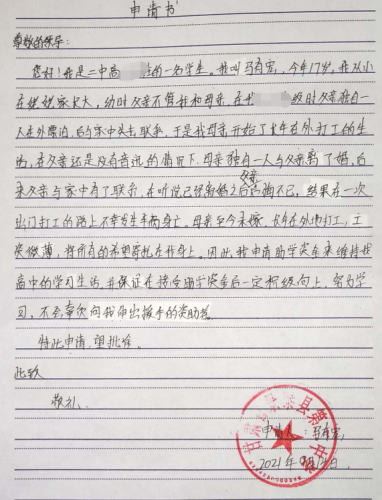 申请书
尊敬的领导:
您好!我是二中高 的一名学生。我叫马有宏,今年17岁,我从小
在姥姥家长大,幼时父亲不管我和母亲,在我 级时父亲独自一
人在外漂泊,后与家中失去联系,于是我母亲开始了长年在外打工的生
活,在父亲还是没有音讯的情况下,母亲独自一人与父亲离了婚,后
来父亲与家中有了联系,在听说已经离婚之后父亲 不已,结果在一次
出门打工的路上不幸发生车祸身亡。母亲至今未嫁,长年在外地打工,工
资微薄,将所有的希望寄托在我身上。因此,我申请助学资金来维持我
高中的学习生活,并保证在接受助学资金后一定积极向上,努力学
习,不会辜负向我伸出援手的资助者。
特此申请,望批准。
此致
敬礼
申请人:马有宏
2021年9月 日
甘肃 县第二中学